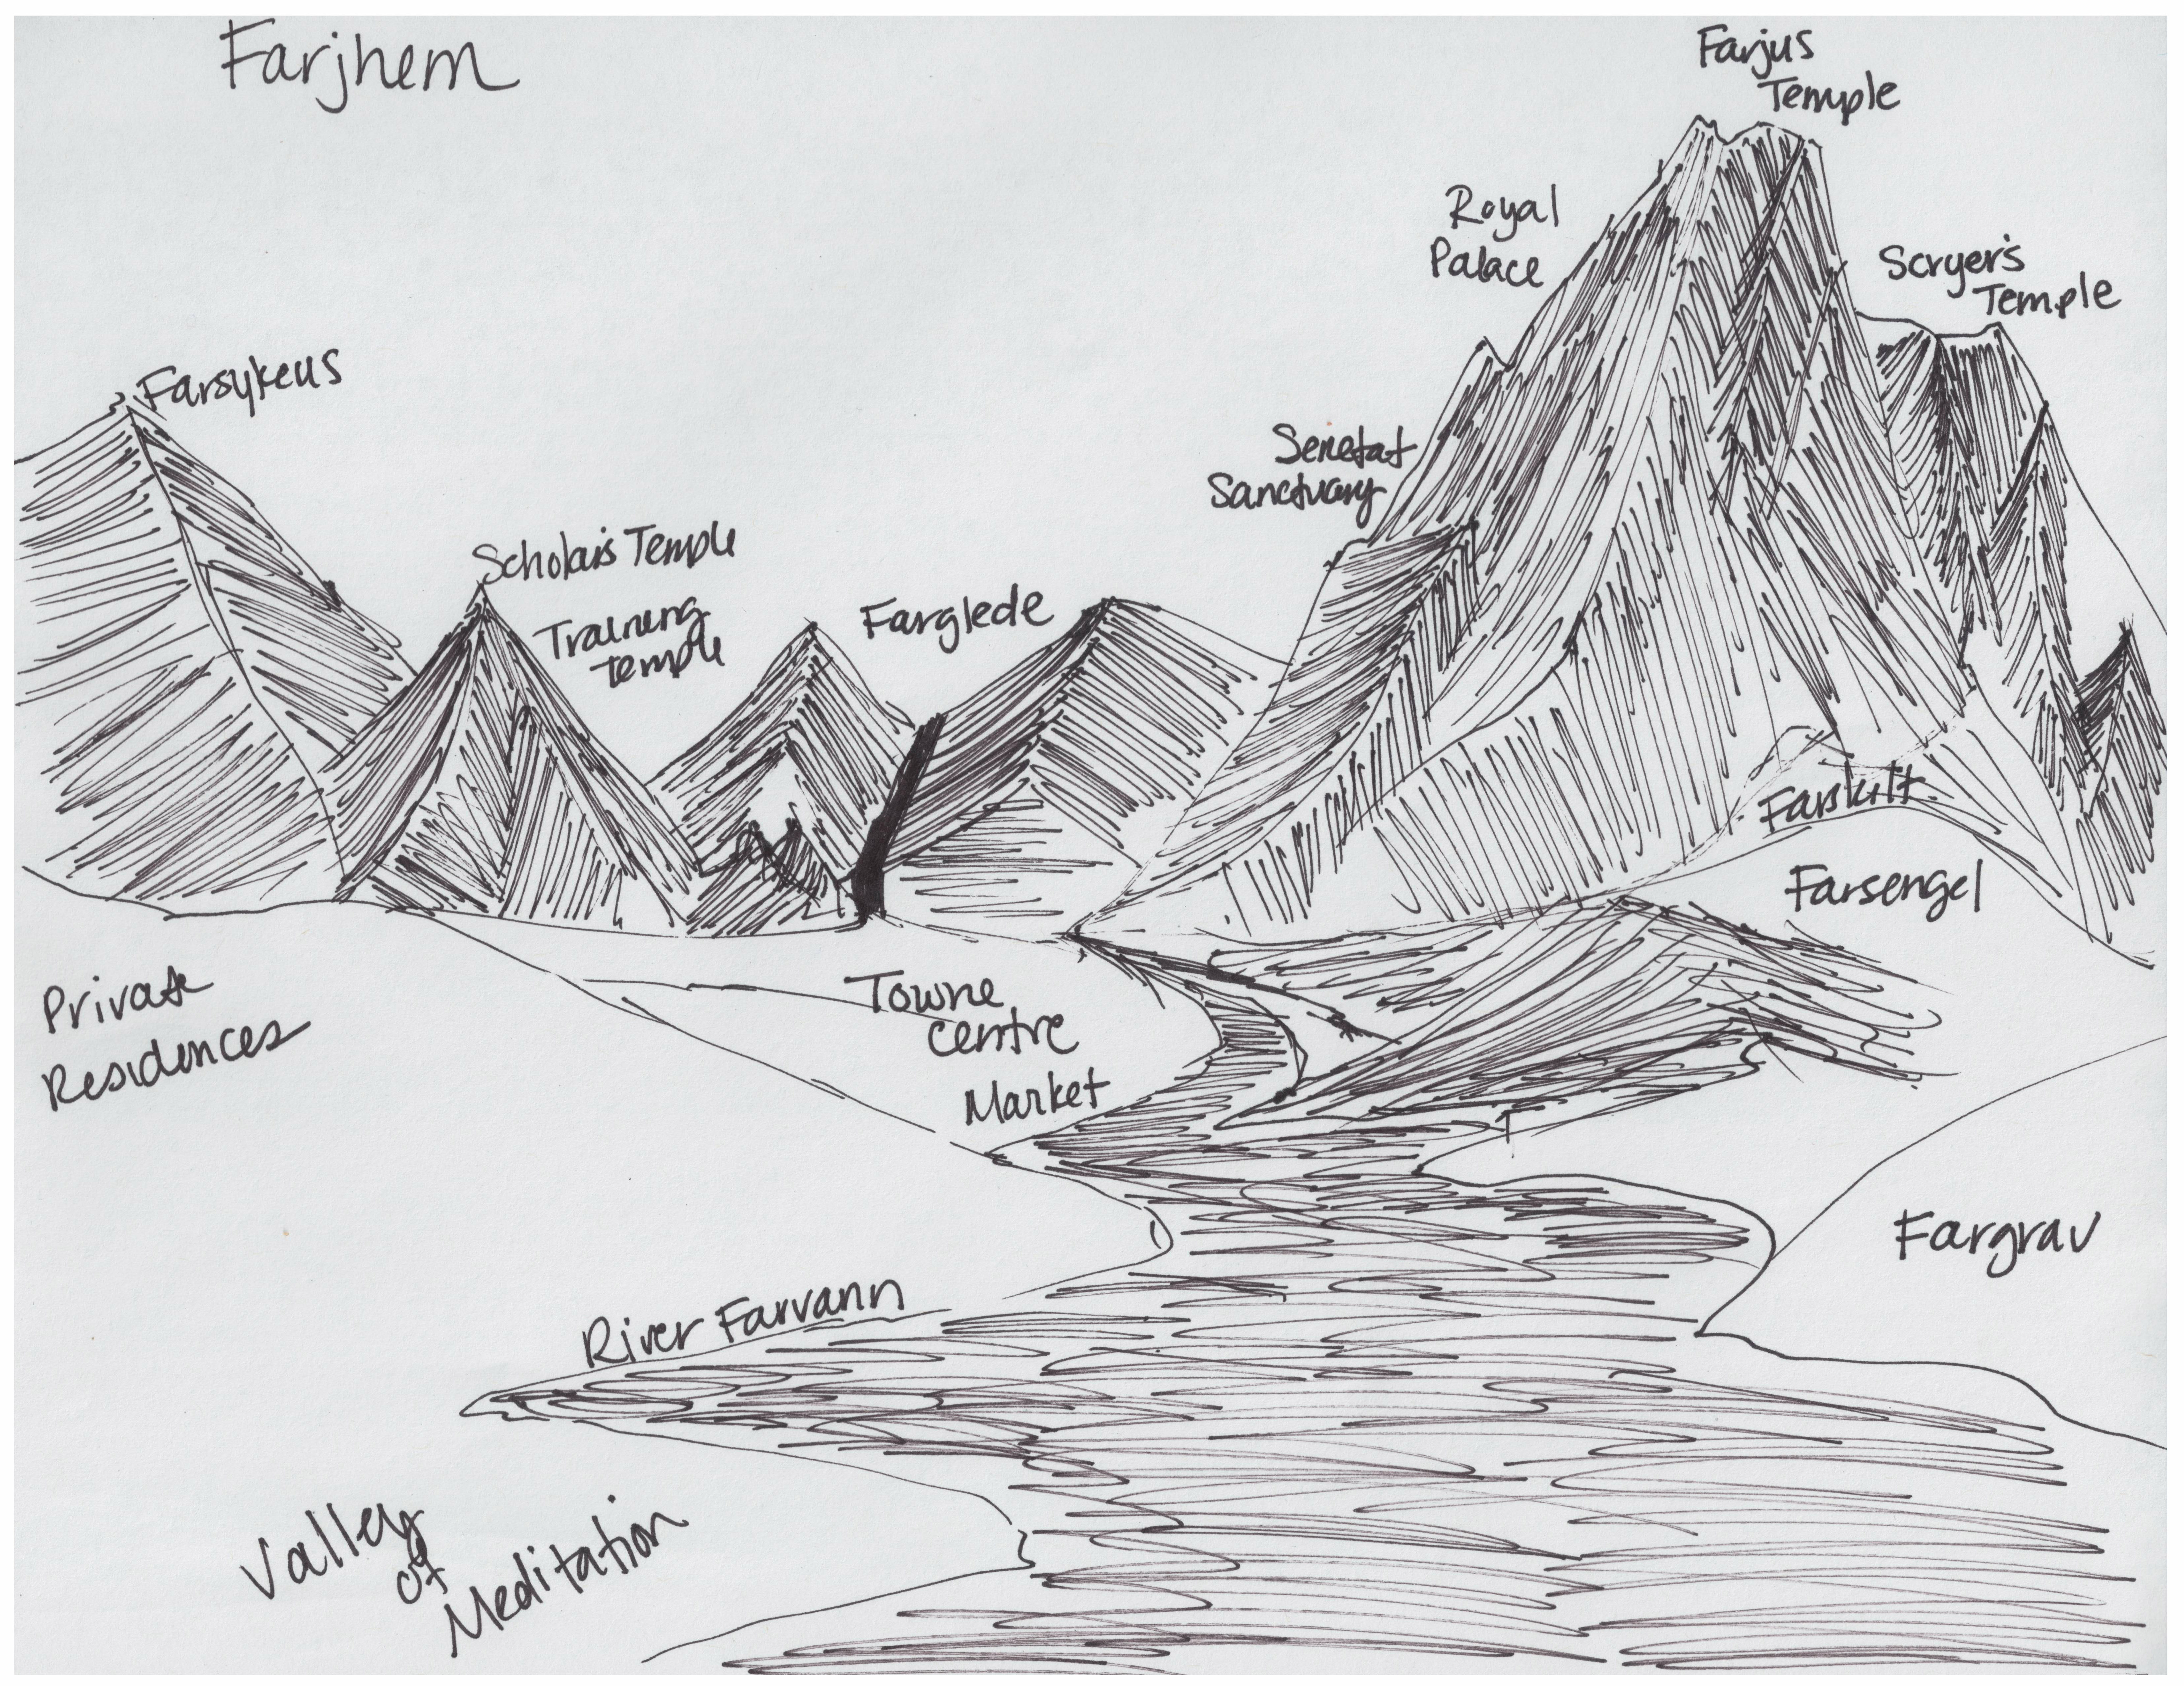 Farjhem
Farjus
Temple
Royal
Palace
Scryer's
Temple
Farsykeus
Senetat
Sanctuary
Scholar's Temple
Training
Temple
Farglede
Farskilt
Farsengel
Private
Residences
Towne
Centre
Market
Fargrav
River Farvann
Valley
of
Meditation